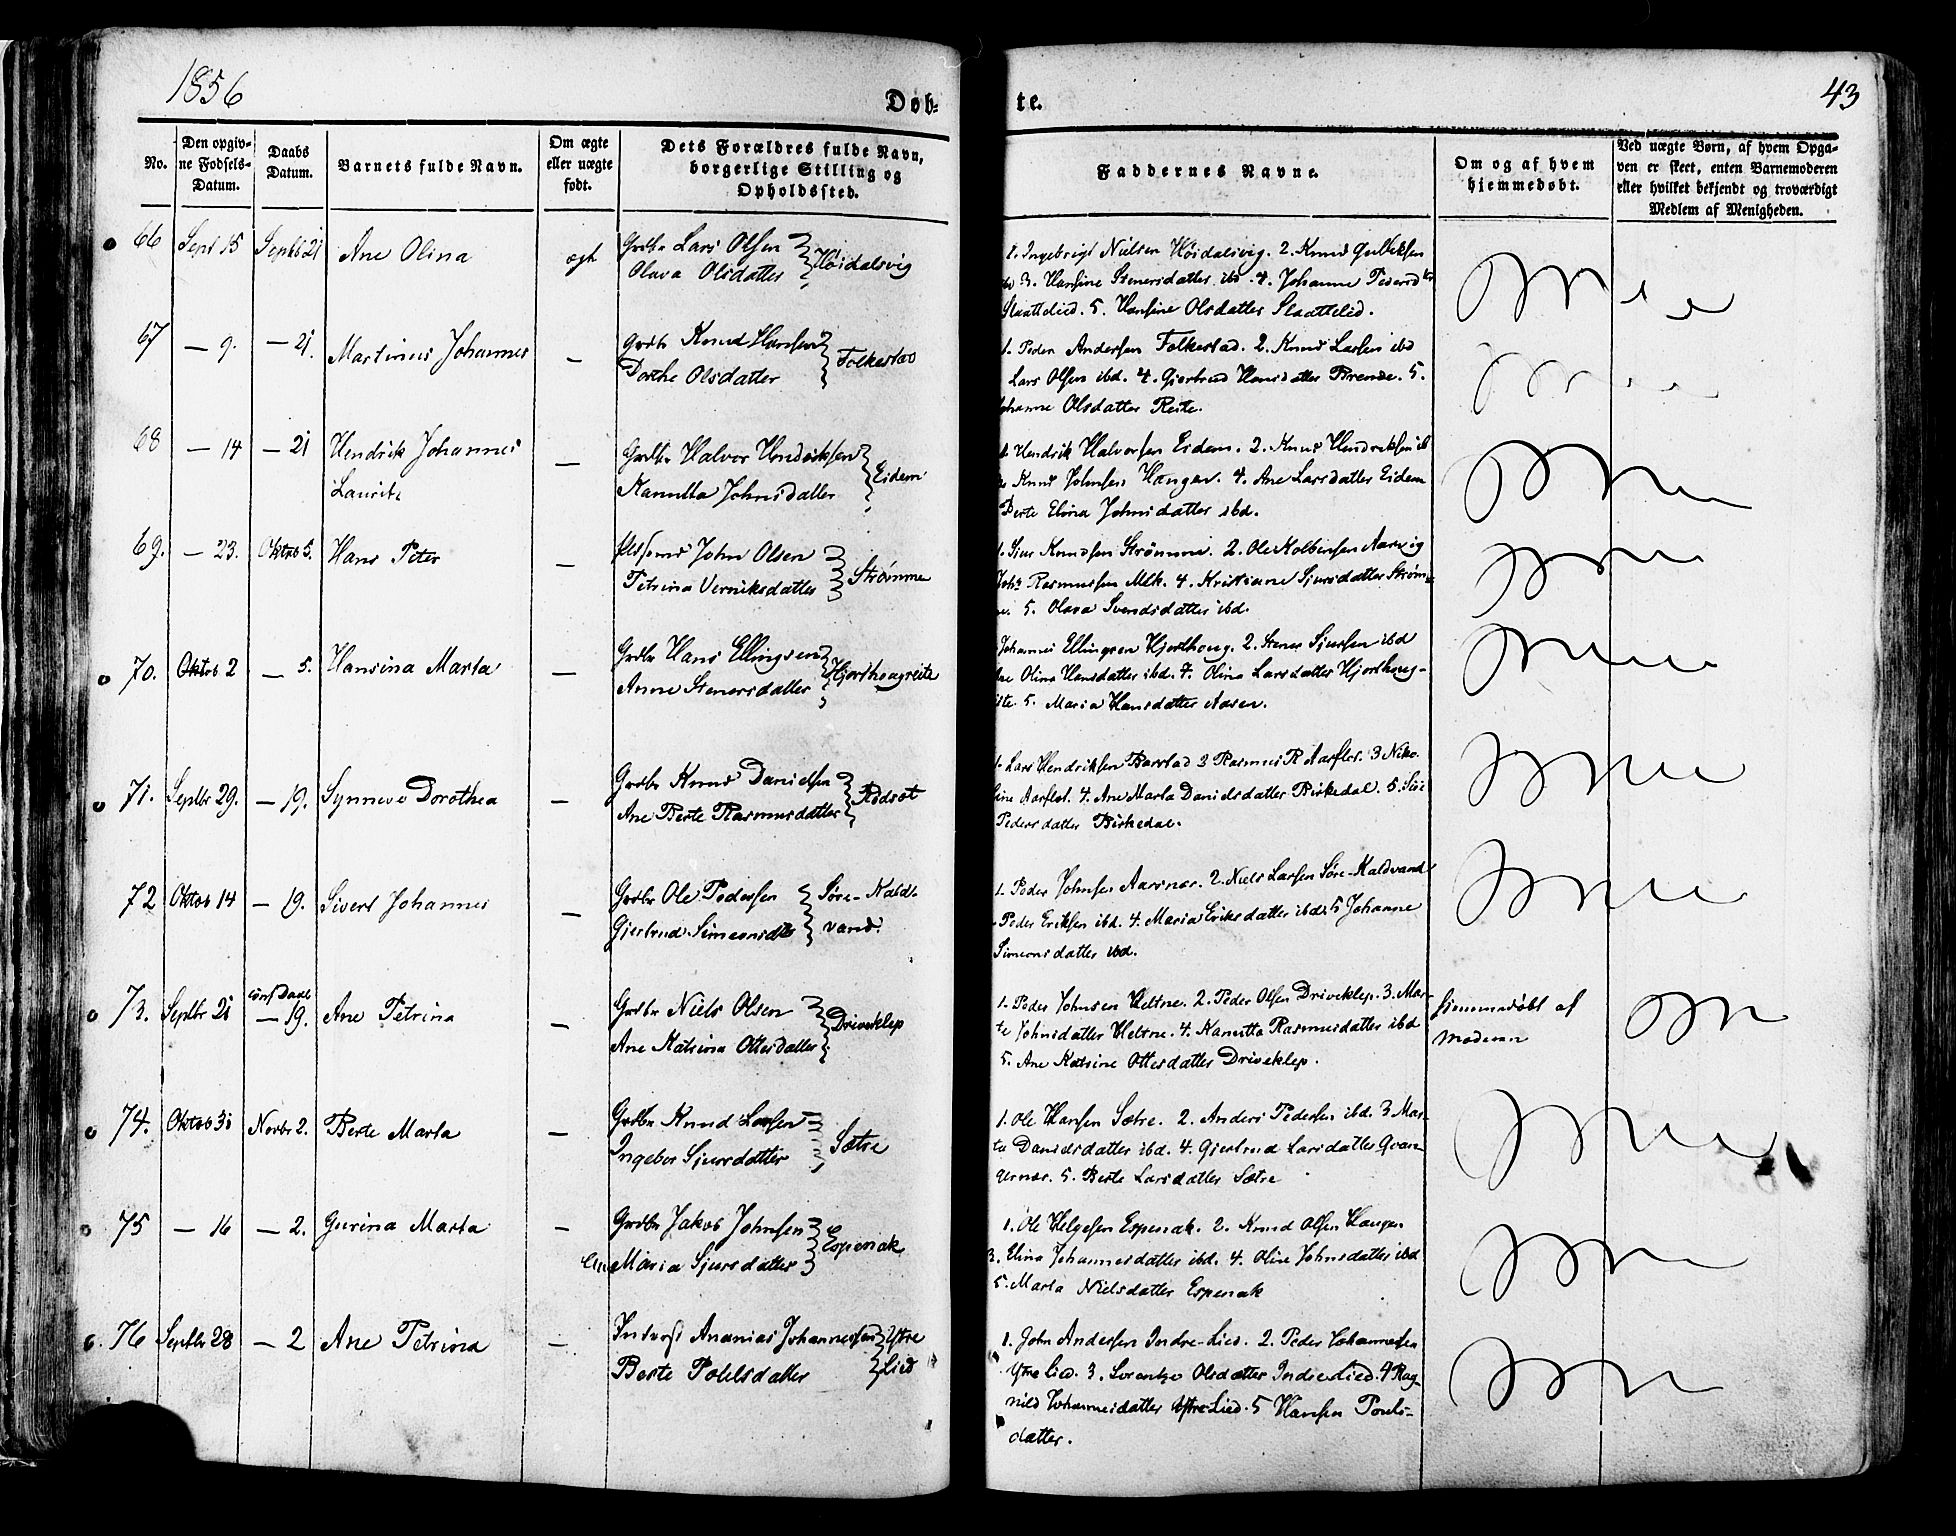 1856
Døb-
te.
43
No.
Den opgiv-
ne Fødsels-
Datum.
Daabs
Datum.
Barnets fulde Navn.
Om ægte
eller uægte
født.
Dets Forældres fulde Navn,
borgerlige Stilling og
Opholdssted.
Faddernes Navne.
Om og af hvem
hjemmedøbt.
Ved uægte Børn, af hvem Opga-
ven er skeet, enten Barnemoderen
eller hvilket bekjendt og troværdigt
Medlem af Menigheden.
66 Sept 15 Septbr 21 Ane Olina ægt
Grdbr Lars Olsen
Olava Olsdatter
Høidalsvig
1. Ingebrigt Nielsen Høidalsvig. 2. Knud
3. Hansine Stenersdatter ibd. 4. Johanne
5. Hansine Olsdatter
67 — 9. — 21. Martinus Johannes —
Grdbr Knud Hansen
Dorthe Olsdatter
Folkestad
1. Peder Andersen Folkestad. 2. Knud Larsen ibd
Lars Olsen ibd. 4. Gjertrud Hansdatter Brende. 5.
Johanne Olsdatter Reite.
68 — 14 — 21 Hendrik Johannes
Laurits —
Grdbr Halvor Hendriksen
Kanutta Johnsdatter
Eidem
1. Hendrik Halvorsen Eidem. 2. Knud Hendriksen ibd
Knud Johnsen Haugen. 4. Ane Larsdatter Eidem
Berte Elina Johnsdatter ibd.
69. — 23. Oktob 5. Hans Peter —
John Olsen
Petrina Verniksdatter
Strømme
1. Sjur Knudsen Strømme. 2. Ole Kolbensen Aarvig
Rasmussen Mek. 4. Kristiane Sjursdatter Strøm-
me. 5. Olava Svendsdatter ibd.
70. Oktob 2 — 5. Hansina Marta —
Grdbr Hans Ellingsen
Anne Stenersdatter
Hjorthougreite
Johannes Ellingsen Hjorthoug. 2. Stener Sjursen ibd
Oline Hansdatter ibd. 4. Olina Larsdatter Hjorthoug-
5. Maria Hansdatter Aasen.
71. Septbr 29. — 19. Synneve Dorothea —
Grdbr Knud Danielsen
Ane Berte Rasmusdatter
Rødsæt
1. Lars Hendriksen Barstad 3 Rasmus R Aarflot. 3 Niko-
line Aarflot. 4. Ane Marta Danielsdatter Birkedal. 5.
Pedersdatter Birkedal.
72 Oktob 14 — 19. Sivert Johannes —
Grdbr Ole Pedersen
Gjertrud Simeonsdtr
Søre-Kald-
vand.
1. Peder Johnsen Aarsnæs. 2. Niels Larsen Søre-Kaldvand
Peder Eriksen ibd. 4. Maria Eriksdatter ibd. 5 Johanne
Simeonsdatter ibd.
73. Septbr 21 — 19. Ane Petrina —
Grdbr Niels Olsen
Ane Katrina Ottesdatter
Driveklep
1. Peder Johnsen Heltne. 2. Peder Olsen Driveklep. 3. Mar-
te Johnsdatter Heltne. 4. Kanutta Rasmusdatter ibd
5. Ane Katrine Ottesdatter Driveklep.
hjemmedøbt af
Moderen
74. Oktob 31 Novbr 2. Berte Marta —
Grdbr Knud Larsen
Ingebor Sjursdatter
Sætre
1. Ole Hansen Sætre. 2. Anders Pedersen ibd. 3. Mar-
te Danielsdatter ibd. 4. Gjertrud Larsdatter Qvan-
gernæs. 5. Berte Larsdatter Sætre
75 — 16 — 2. Gurina Marta —
Grdbr Jakob Johnsen
Maria Sjursdatter
Espenak
1. Ole Helgesen Espenak. 2. Knud Olsen Haugen
3. Elina Johannesdatter ibd. 4. Oline Johnsdatter ibd
5. Marta Nielsdatter Espenak
76 Septbr 28 — 2 Ane Petrina —
Inderst Ananias Johannessen
Berte Povelsdatter
Ytre
Lied
1. John Andersen Indre-Lied. 2. Peder Johannessen
Ytre Lied. 3. Olsdatter Indre Lied. 4 Rag-
nild Johannesdatter Ytre-Lied. 5 Hansen Pouls-
datter.